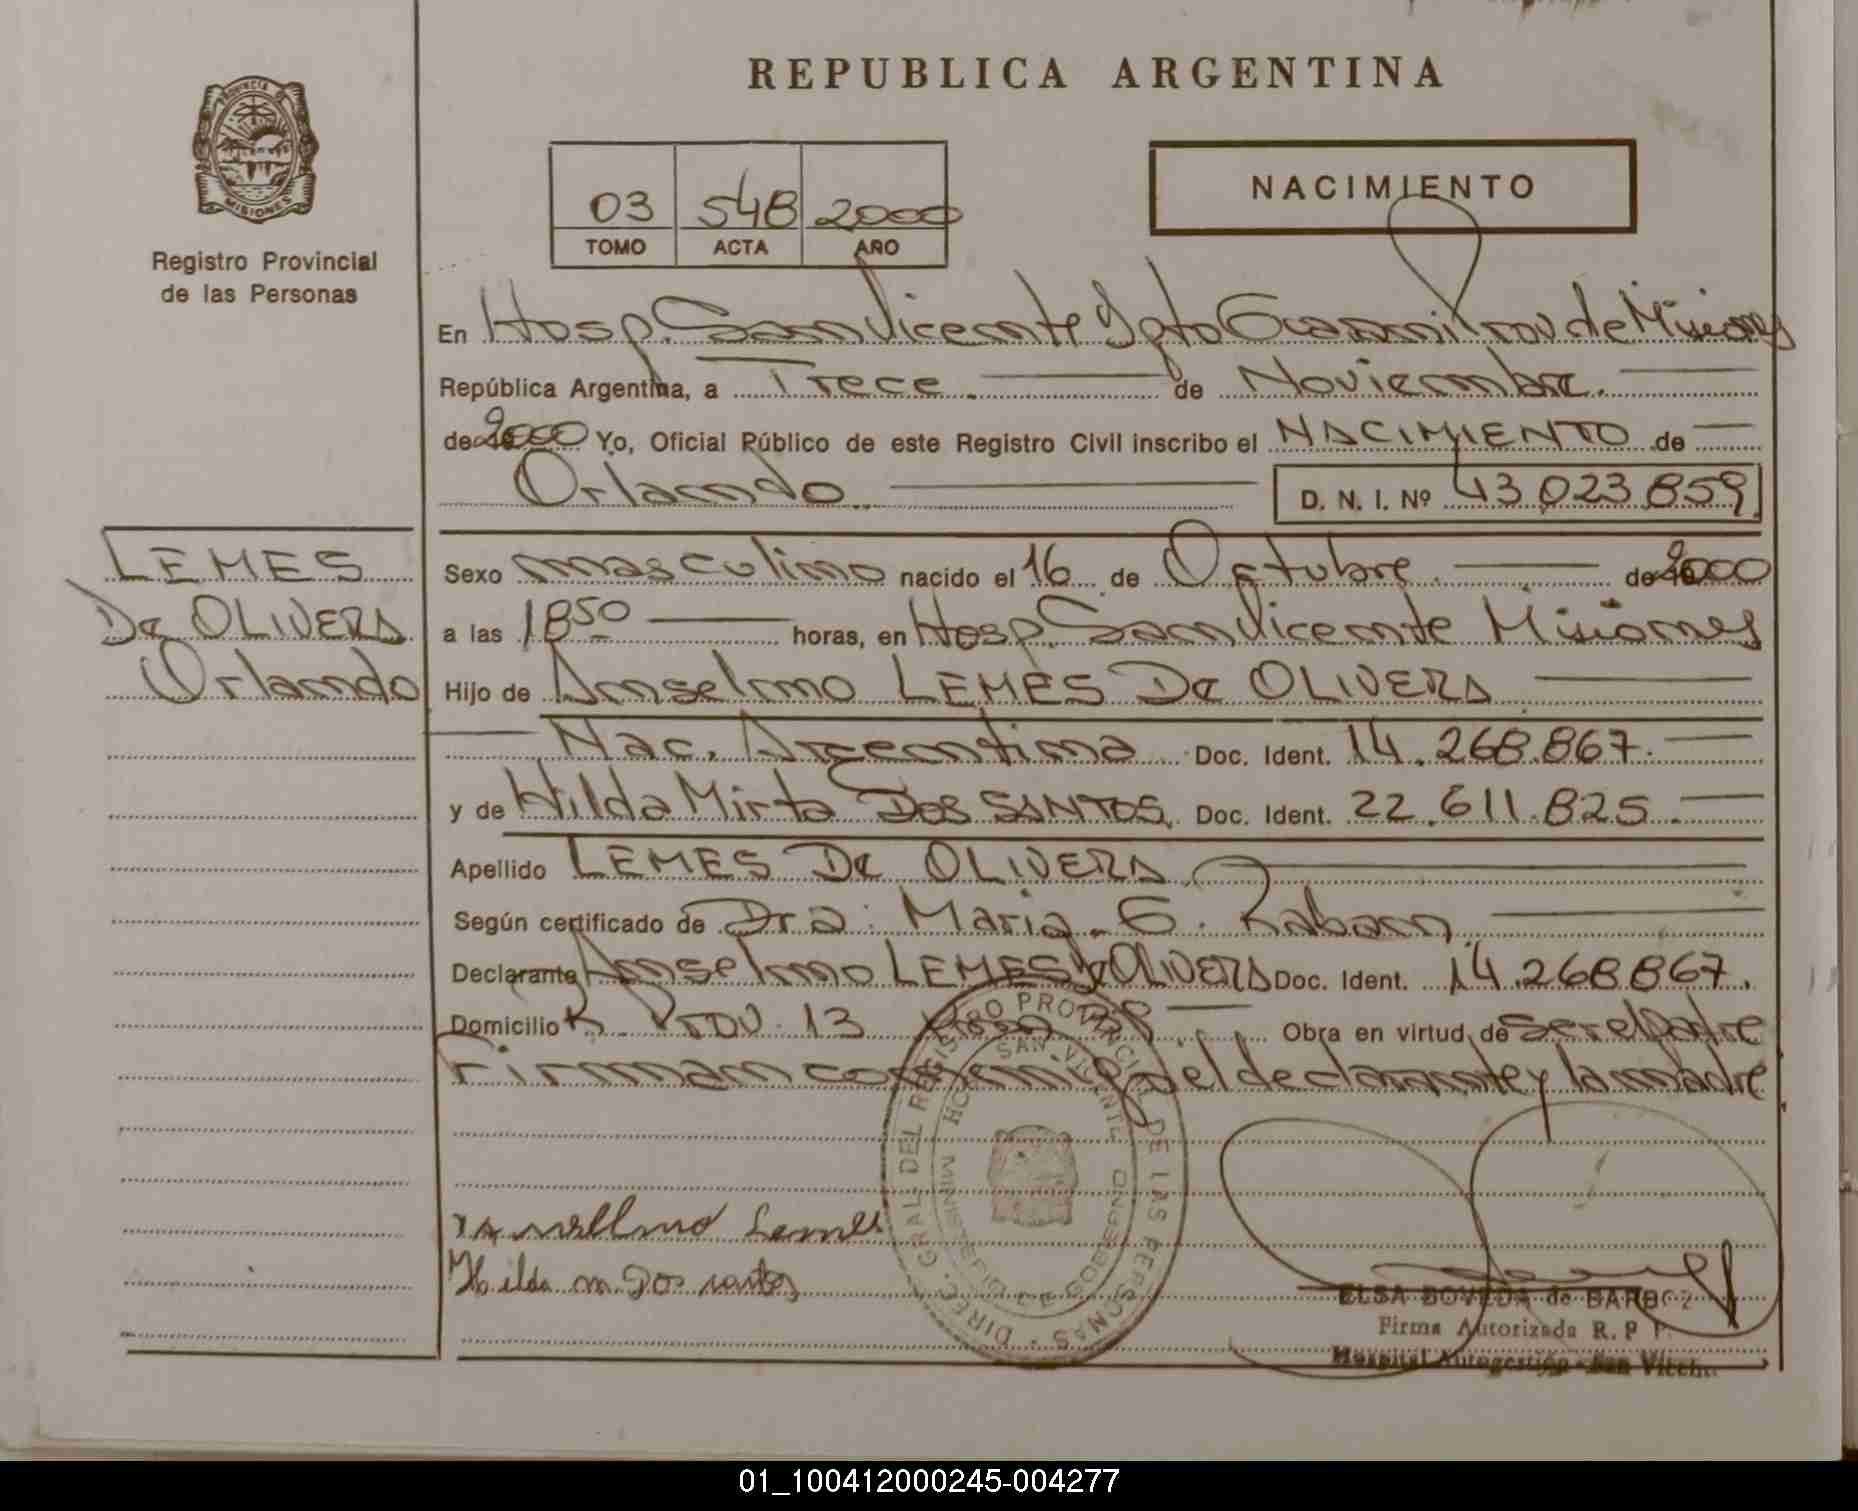 REPUBLICA ARGENTINA
PROVINCIA DE MISIONES
Registro Provincial
de las Personas
03 548 2000
TOMO ACTA AÑO
NACIMIENTO
En Hosp. San Vicente Dpto Guaraní Prov de Misiones
República Argentina, a Trece de Noviembre.
de 2000 Yo, Oficial Público de este Registro Civil inscribo el NACIMIENTO de
Orlando D. N. I. Nº 43.023.859
LEMES
De OLIVERA
Orlando
Sexo masculino nacido el 16 de Octubre de 2000
a las 18 50 horas, en Hosp. San Vicente Misiones
Hijo de Anselmo LEMES De OLIVERA
Nac. Argentina Doc. Ident. 14.268.867.
y de Hilda Mirta DOS SANTOS. Doc. Ident. 22.611.825
Apellido LEMES De OLIVERA
Según certificado de Dra: Maria. E. Raban
Declarante Anselmo LEMES De OLIVERA Doc. Ident. 14.268867.
Domicilio Prov. 13 Obra en virtud de ser el Padre
Firman conmigo el declarante y la madre
DIREC. GRAL. DEL REGISTRO PROVINCIAL DE LAS PERSONAS
SAN VICENTE
MINISTERIO DE GOBIERNO
Lemes
Hilda m. Dos santos
ELSA BOVEDA de
Firma Autorizada R. P. P.
Hospital Autogestión - San Vicente
01_100412000245-004277